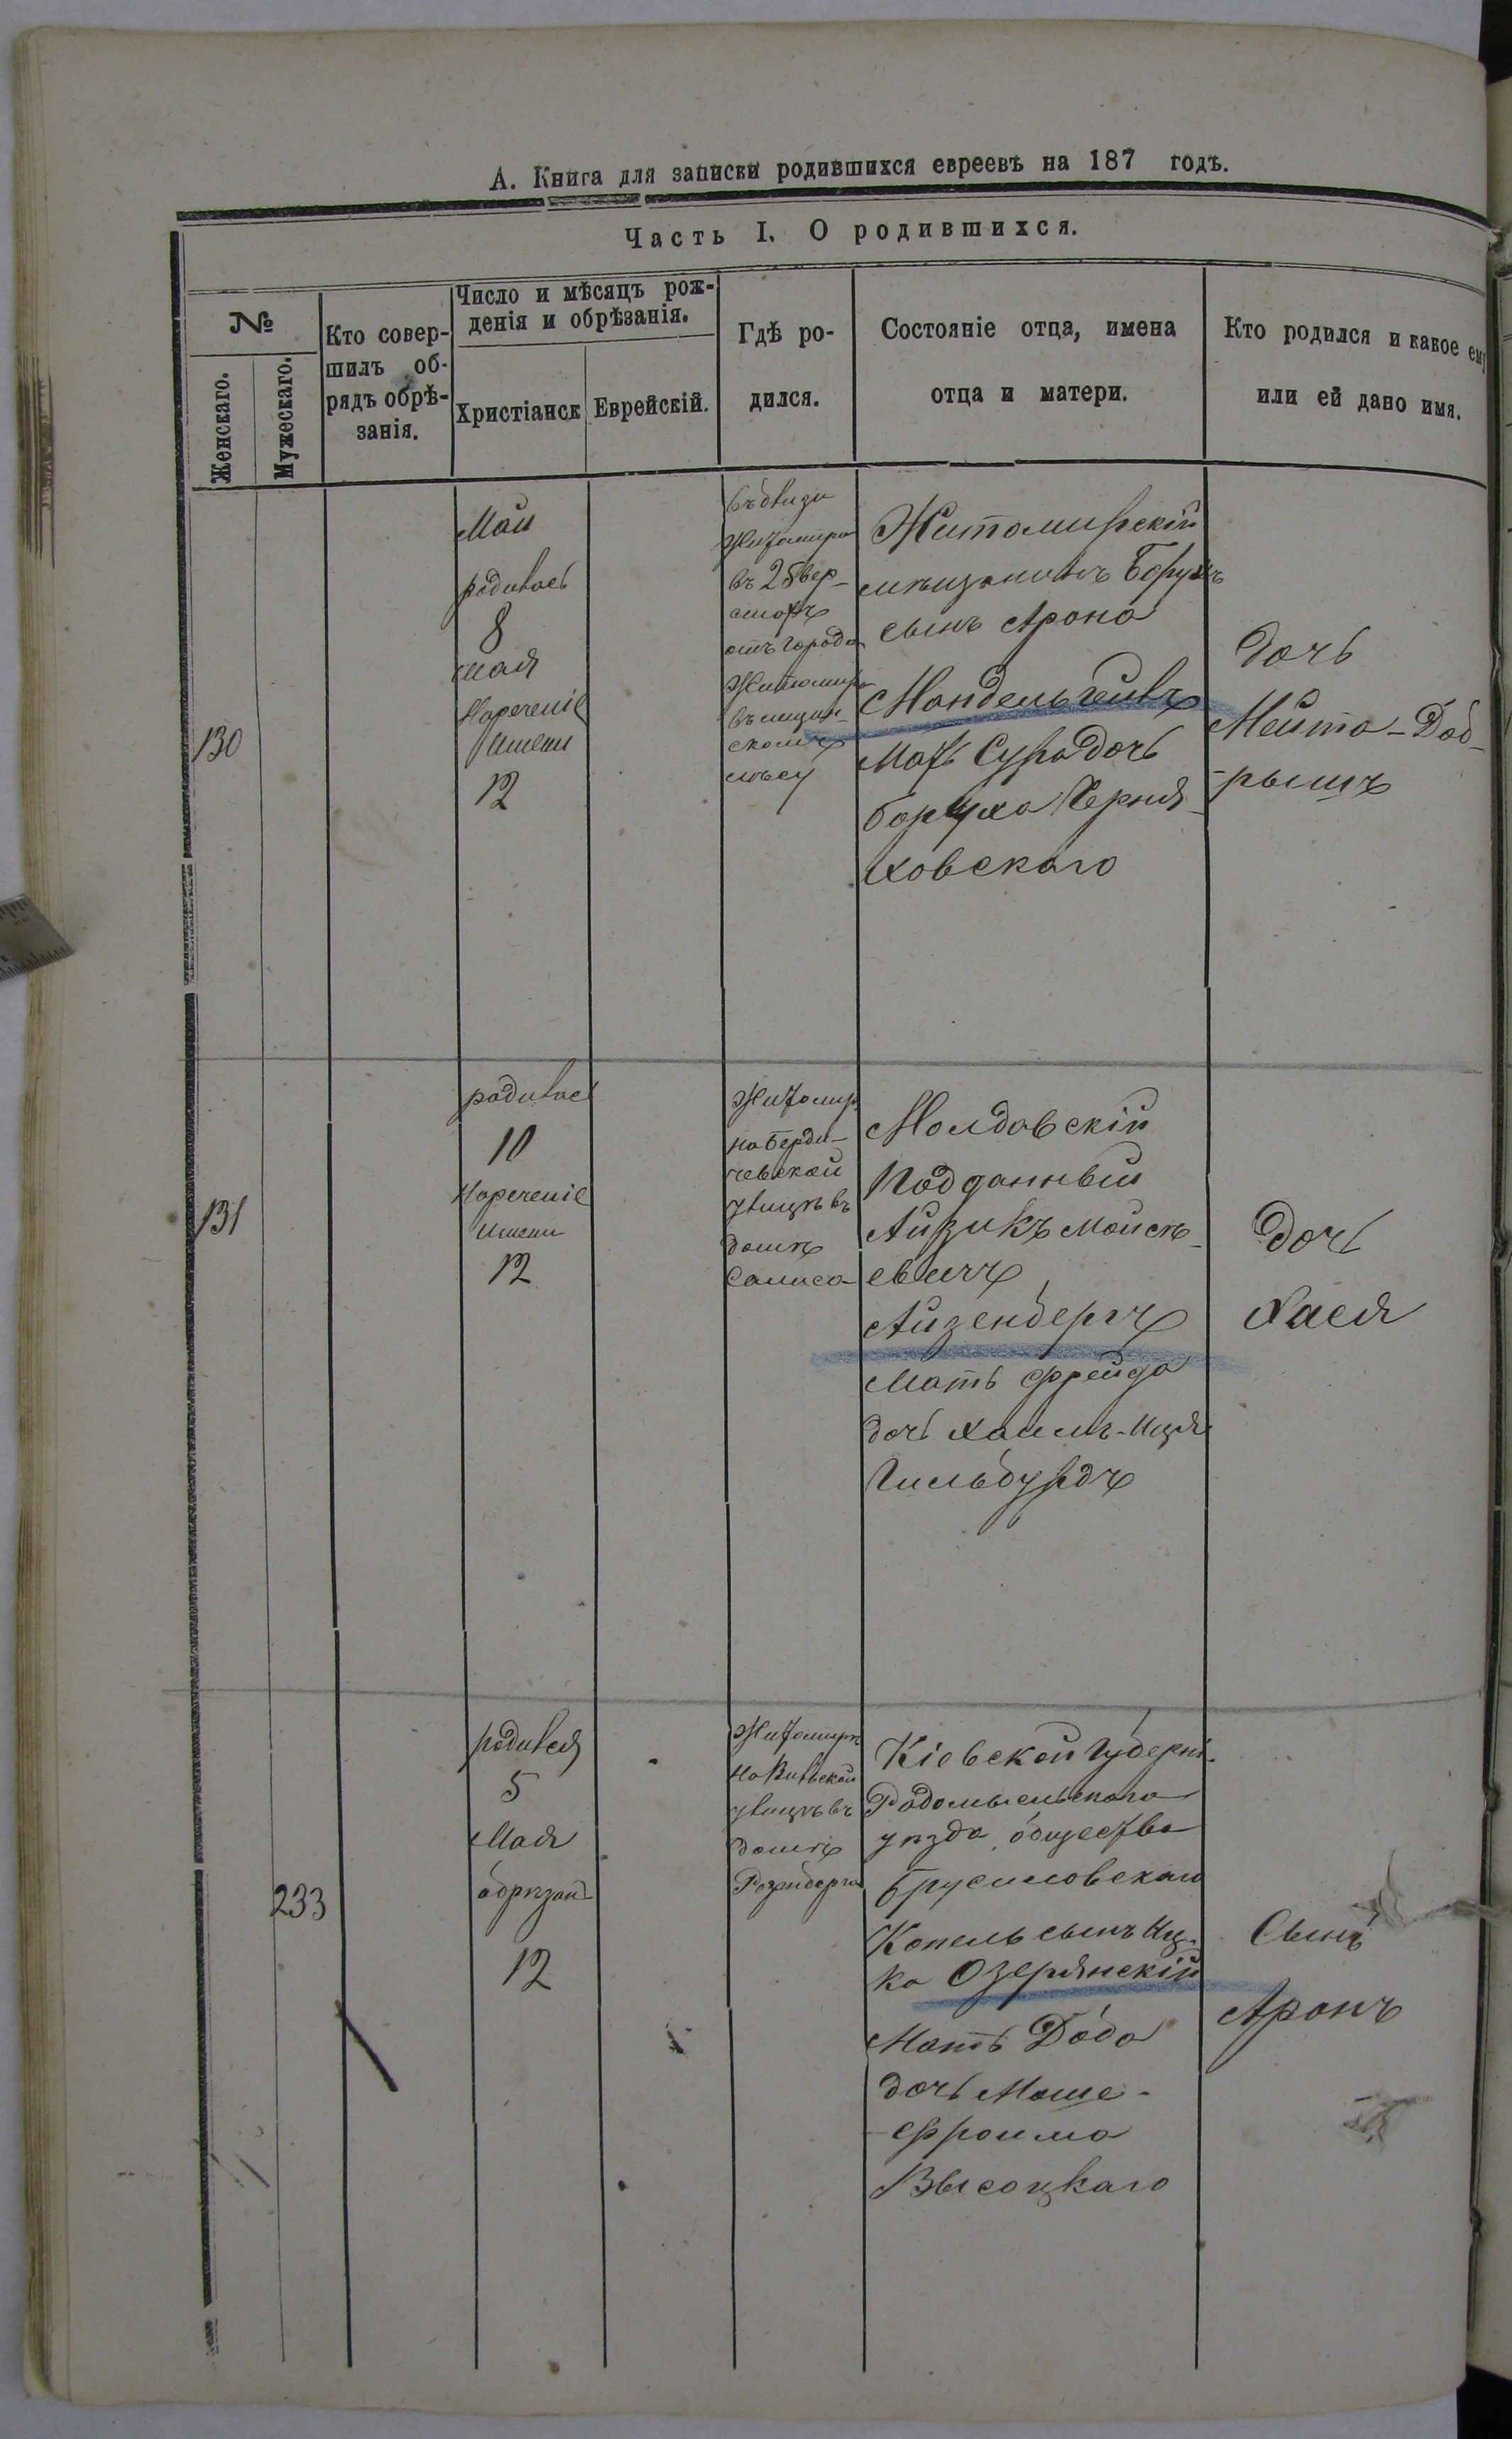 А. Книга для записки родившихся евреевъ на 187 годъ.
Часть I. О родившихся.
№
Женскаго.
Мужескаго.
Кто совер-
шилъ об-
рядъ обрѣ-
занія.
Число и мѣсяцъ рож-
денія и обрѣзанія.
Христіанск
Еврейскій.
Гдѣ ро-
дился.
Состояніе отца, имена
отца и матери.
Кто родился и какое ему
или ей дано имя.
130
Май
родилась
8
мая
Нареченіе
Имени
12
Житомира
въ 25 вер-
стахъ
отъ города
Житомира
скомъ
лѣсу
Житомирскій
мѣщанинъ Борухъ
сынъ Арона
Мандельгеивъ
Мать Сура дочь
Боруха Черня-
ховскаго
дочь
Мейта-Доб-
рышъ
131
родилась
10
Нареченіе
Имени
12
Житомир
на Берди-
чевской
улицѣ въ
домѣ
Молдавскій
Подданный
Айзикъ Мойсѣ-
евичъ
Айзенбергъ
Мать Фрейда
дочь Хаимъ-Иця
Гильбурдъ
дочь
Хася
233
родился
5
Мая
обрѣзанъ
12
Житомирѣ
на Вильской
улицѣ въ
домѣ
Розенберга
Кіевской Губерні
Радомысльскаго
уѣзда общества
Брусиловскаго
Копель сынъ Иц-
ка Озерянскій
Мать Доба
дочь Моше-
Фроима
Высоцкаго
Сынъ
Аронъ